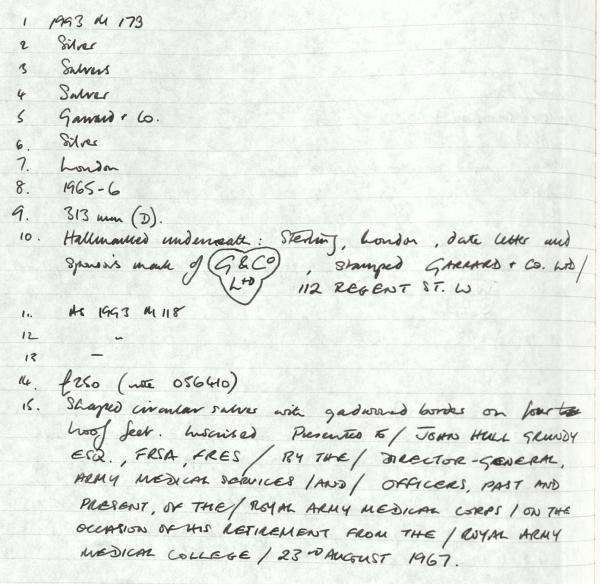 1 1993 M 173
2 Silver
3 Salvers
4 Salver
5 Garrard + Co.
6. Silver
7. London
8. 1965-6
9. 313 mm (D).
10. Hallmarked underneath: Sterling, London, date letter and
Sponsor's mark of G & Co Ltd, stamped GARRARD + CO. LTD/
112 REGENT ST. W
11. AS 1993 M 118
12 "
13 —
14. £250 (note 056410)
15. Shaped circular salver with gadrooned border on four
hoof feet. Inscribed Presented to / JOHN HULL GRUNDY
ESQ., FRSA, FRES / BY THE / DIRECTOR-GENERAL,
ARMY MEDICAL SERVICES / AND / OFFICERS, PAST AND
PRESENT, OF THE / ROYAL ARMY MEDICAL CORPS / ON THE
OCCASION OF HIS RETIREMENT FROM THE / ROYAL ARMY
MEDICAL COLLEGE / 23RD AUGUST 1967.